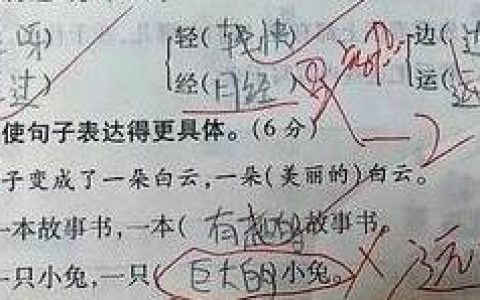 呀) 轻(轻快) 边(
过) 经(月经) 运(
使句子表达得更具体。(6分) —2
子变成了一朵白云,一朵(美丽的)白云。
一本故事书,一本(有趣的故事书。
一只小兔,一只(巨大的小兔。